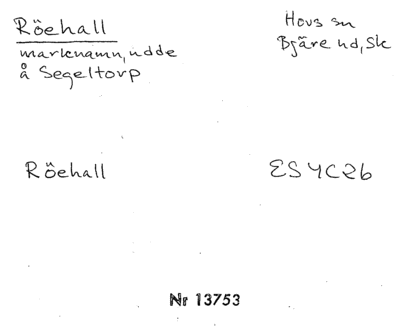 Röehall
Hovs sn
marknamn, udde
Bjäre hd, Sk
å Segeltorp
Röehall
ES 4C2b
Nr 13753